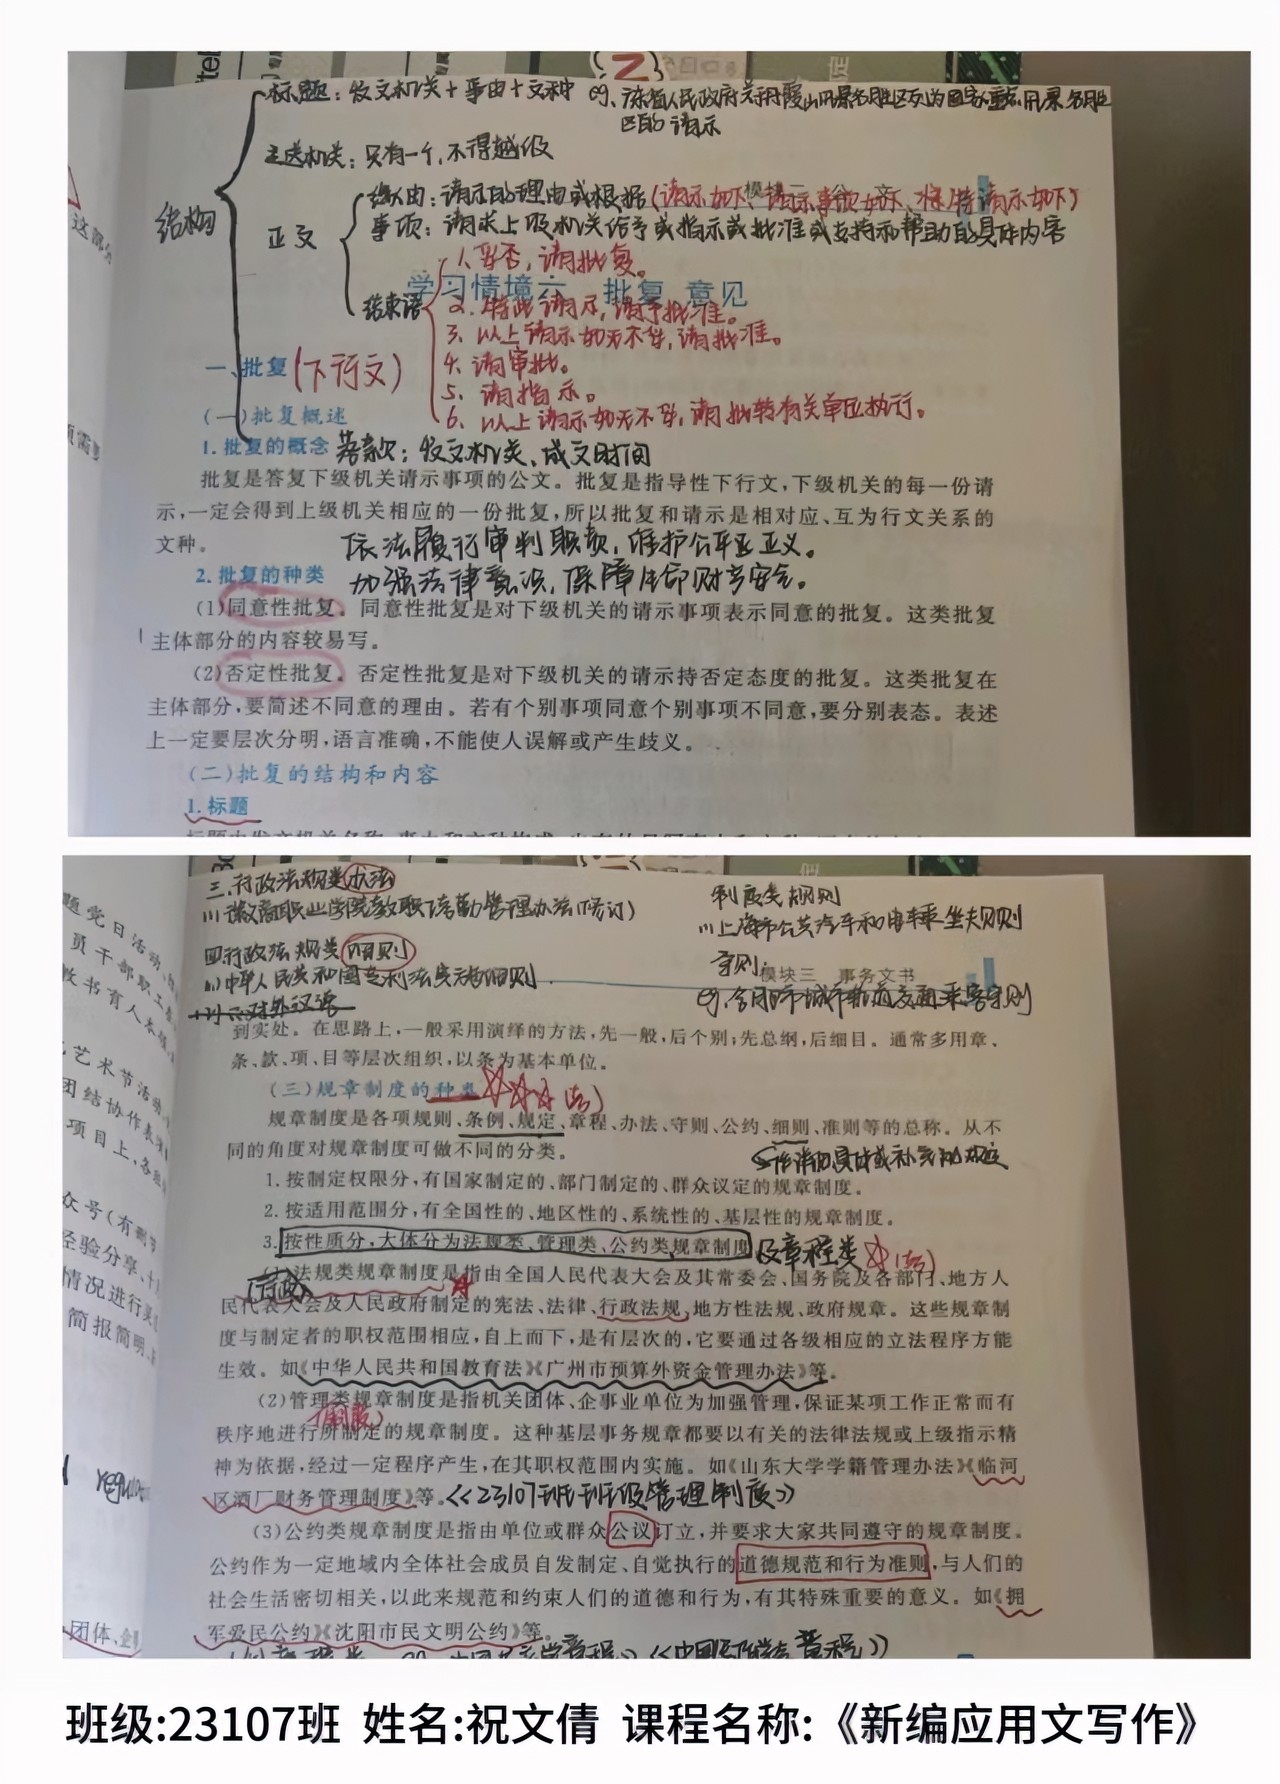 标题：发文机关+事由+文种 eg、广东省人民政府关于丹霞山风景名胜区列为国家重点风景名胜
区的请示
主送机关：只有一个，不得越级
模块二 公 文
结构
正文
缘由：请示的理由或根据（请示如下、请示事项如下、现特请示如下）
事项：请求上级机关给予或指示或批准或支持和帮助的具体内容
这部分
结束语
1、妥否，请批复。
学习情境六 批复 意见
2、特此请示，请予批准。
3、以上请示如无不妥，请批准。
一、批复（下行文）
4、请审批。
5、请指示。
6、以上请示如无不妥，请批转有关单位执行。
（一）批复概述
1. 批复的概念
落款：发文机关、成文时间
批复是答复下级机关请示事项的公文。批复是指导性下行文，下级机关的每一份请
示，一定会得到上级机关相应的一份批复，所以批复和请示是相对应、互为行文关系的
文种。
依法履行审判职责，维护公平正义。
2. 批复的种类
加强法律意识，保障生命财产安全。
(1)同意性批复。同意性批复是对下级机关的请示事项表示同意的批复。这类批复
主体部分的内容较易写。
(2)否定性批复。否定性批复是对下级机关的请示持否定态度的批复。这类批复在
主体部分，要简述不同意的理由。若有个别事项同意个别事项不同意，要分别表态。表述
上一定要层次分明，语言准确，不能使人误解或产生歧义。
（二）批复的结构和内容
1. 标题
三、行政法规类办法
(1)徽商职业学院教职工考勤管理办法（修订）
四行政法规类细则
(1)中华人民共和国专利法实施细则
制度类规则
(1)上海市公共汽车和电车乘坐规则
守则：
模块三 事务文书
eg、合肥市城市轨道交通乘客守则
到实处。在思路上，一般采用演绎的方法，先一般，后个别；先总纲，后细目。通常多用章、
条、款、项、目等层次组织，以条为基本单位。
（三）规章制度的种类
规章制度是各项规则、条例、规定、章程、办法、守则、公约、细则、准则等的总称。从不
同的角度对规章制度可做不同的分类。
1. 按制定权限分，有国家制定的、部门制定的、群众议定的规章制度。
2. 按适用范围分，有全国性的、地区性的、系统性的、基层性的规章制度。
3. 按性质分，大体分为法规类、管理类、公约类规章制度及章程类
(1)法规类规章制度是指由全国人民代表大会及其常委会、国务院及各部门、地方人
（行政）
民代表大会及人民政府制定的宪法、法律、行政法规、地方性法规、政府规章。这些规章制
度与制定者的职权范围相应，自上而下，是有层次的，它要通过各级相应的立法程序方能
生效。如《中华人民共和国教育法》《广州市预算外资金管理办法》等。
(2)管理类规章制度是指机关团体、企事业单位为加强管理，保证某项工作正常而有
（制度）
秩序地进行所制定的规章制度。这种基层事务规章都要以有关的法律法规或上级指示精
神为依据，经过一定程序产生，在其职权范围内实施。如《山东大学学籍管理办法》《临河
区酒厂财务管理制度》等。《23107班班级管理制度》
(3)公约类规章制度是指由单位或群众公议订立，并要求大家共同遵守的规章制度。
公约作为一定地域内全体社会成员自发制定、自觉执行的道德规范和行为准则，与人们的
社会生活密切相关，以此来规范和约束人们的道德和行为，有其特殊重要的意义。如《拥
军爱民公约》《沈阳市民文明公约》等。
题党日活动
员干部职工
教书有人
艺术节活动
团结协作表
项目上、各
众号（有删
经验分享、
情况进行
简报简明
团体、企
班级:23107班 姓名:祝文倩 课程名称:《新编应用文写作》